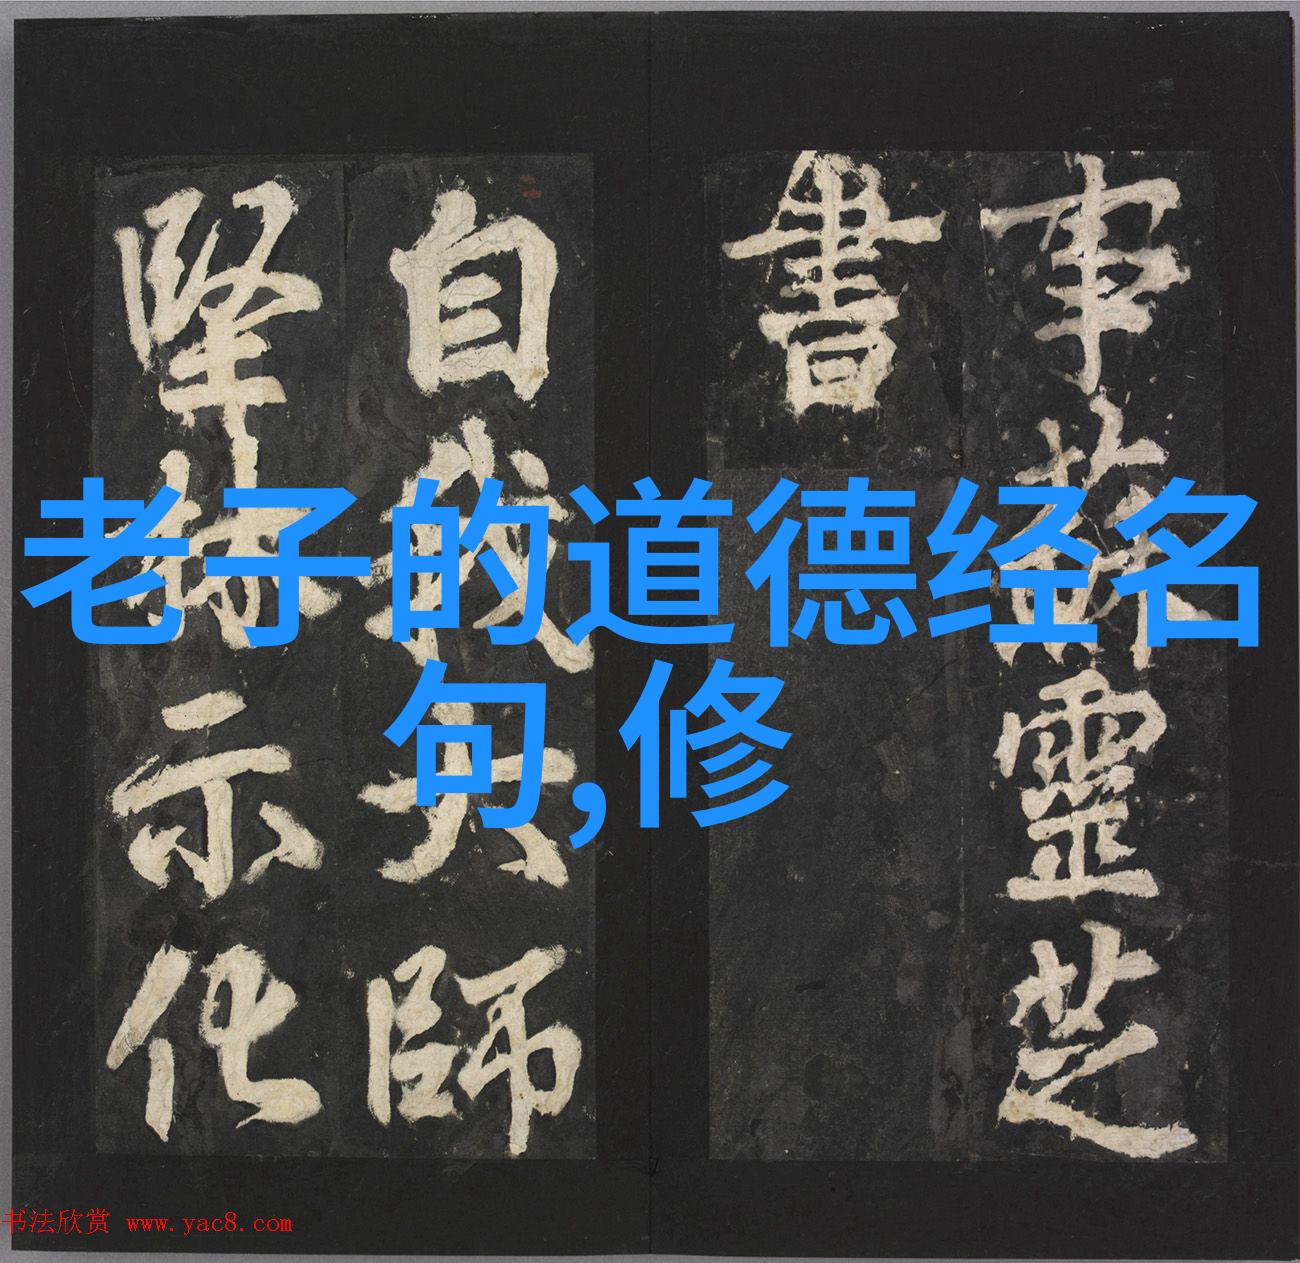 老子的道德经名
句,修
事蘇靈芝
書
自我大師
堅林示化
书法欣赏 www.yac8.com